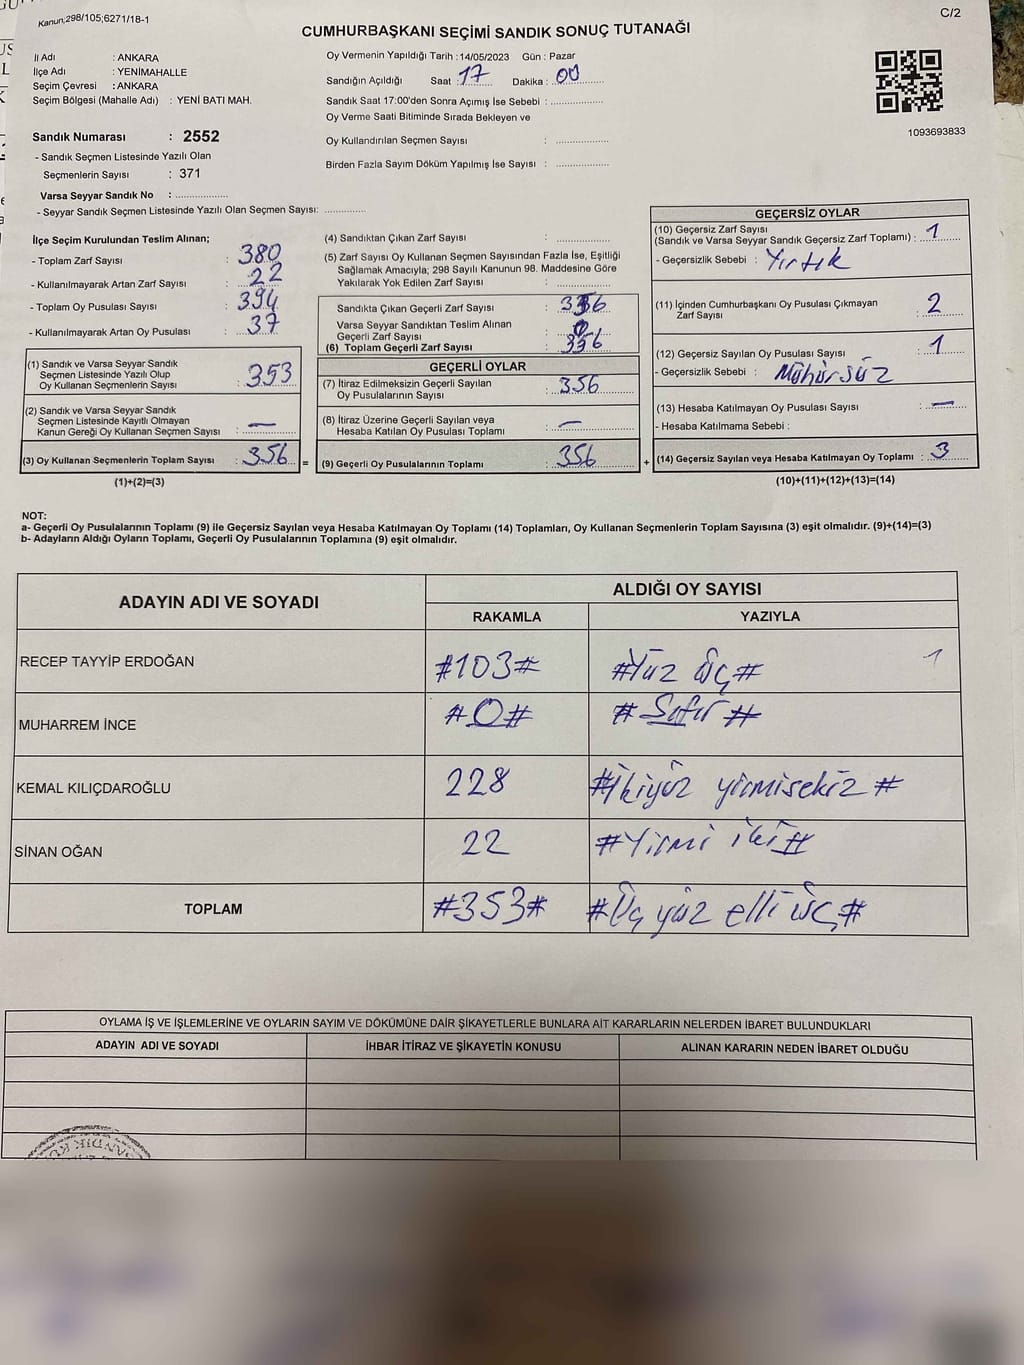 Kanun;298/105;6271/18-1
C/2
CUMHURBAŞKANI SEÇİMİ SANDIK SONUÇ TUTANAĞI
İl Adı : ANKARA
İlçe Adı : YENİMAHALLE
Seçim Çevresi : ANKARA
Seçim Bölgesi (Mahalle Adı) : YENİ BATI MAH.
Oy Vermenin Yapıldığı Tarih : 14/05/2023 Gün : Pazar
Sandığın Açıldığı Saat : 17 Dakika : 00
Sandık Saat 17:00'den Sonra Açımış İse Sebebi :
Oy Verme Saati Bitiminde Sırada Bekleyen ve
Oy Kullandırılan Seçmen Sayısı :
Birden Fazla Sayım Döküm Yapılmış İse Sayısı :
1093693833
Sandık Numarası : 2552
- Sandık Seçmen Listesinde Yazılı Olan
Seçmenlerin Sayısı : 371
Varsa Seyyar Sandık No :
- Seyyar Sandık Seçmen Listesinde Yazılı Olan Seçmen Sayısı:
İlçe Seçim Kurulundan Teslim Alınan;
- Toplam Zarf Sayısı : 380
- Kullanılmayarak Artan Zarf Sayısı : 22
- Toplam Oy Pusulası Sayısı : 394
- Kullanılmayarak Artan Oy Pusulası : 37
(1) Sandık ve Varsa Seyyar Sandık
Seçmen Listesinde Yazılı Olup
Oy Kullanan Seçmenlerin Sayısı : 353
(2) Sandık ve Varsa Seyyar Sandık
Seçmen Listesinde Kayıtlı Olmayan
Kanun Gereği Oy Kullanan Seçmen Sayısı : —
(3) Oy Kullanan Seçmenlerin Toplam Sayısı : 356 =
(1)+(2)=(3)
(4) Sandıktan Çıkan Zarf Sayısı :
(5) Zarf Sayısı Oy Kullanan Seçmen Sayısından Fazla İse, Eşitliği
Sağlamak Amacıyla; 298 Sayılı Kanunun 98. Maddesine Göre
Yakılarak Yok Edilen Zarf Sayısı :
Sandıkta Çıkan Geçerli Zarf Sayısı : 356
Varsa Seyyar Sandıktan Teslim Alınan
Geçerli Zarf Sayısı : 0
(6) Toplam Geçerli Zarf Sayısı : 356
GEÇERLİ OYLAR
(7) İtiraz Edilmeksizin Geçerli Sayılan
Oy Pusulalarının Sayısı : 356
(8) İtiraz Üzerine Geçerli Sayılan veya
Hesaba Katılan Oy Pusulası Toplamı : —
(9) Geçerli Oy Pusulalarının Toplamı : 356 +
GEÇERSİZ OYLAR
(10) Geçersiz Zarf Sayısı
(Sandık ve Varsa Seyyar Sandık Geçersiz Zarf Toplamı) : 1
- Geçersizlik Sebebi : Yırtık
(11) İçinden Cumhurbaşkanı Oy Pusulası Çıkmayan
Zarf Sayısı : 2
(12) Geçersiz Sayılan Oy Pusulası Sayısı : 1
- Geçersizlik Sebebi : Mühürsüz
(13) Hesaba Katılmayan Oy Pusulası Sayısı : —
- Hesaba Katılmama Sebebi :
(14) Geçersiz Sayılan veya Hesaba Katılmayan Oy Toplamı : 3
(10)+(11)+(12)+(13)=(14)
NOT:
a- Geçerli Oy Pusulalarının Toplamı (9) ile Geçersiz Sayılan veya Hesaba Katılmayan Oy Toplamı (14) Toplamları, Oy Kullanan Seçmenlerin Toplam Sayısına (3) eşit olmalıdır. (9)+(14)=(3)
b- Adayların Aldığı Oyların Toplamı, Geçerli Oy Pusulalarının Toplamına (9) eşit olmalıdır.
ADAYIN ADI VE SOYADI
ALDIĞI OY SAYISI
RAKAMLA YAZIYLA
RECEP TAYYİP ERDOĞAN #103# #Yüz üç# 1
MUHARREM İNCE #0# #Sıfır#
KEMAL KILIÇDAROĞLU 228 #İkiyüz yirmisekiz#
SİNAN OĞAN 22 #Yirmi iki#
TOPLAM #353# #Üç yüz elli üç#
OYLAMA İŞ VE İŞLEMLERİNE VE OYLARIN SAYIM VE DÖKÜMÜNE DAİR ŞİKAYETLERLE BUNLARA AİT KARARLARIN NELERDEN İBARET BULUNDUKLARI
ADAYIN ADI VE SOYADI İHBAR İTİRAZ VE ŞİKAYETİN KONUSU ALINAN KARARIN NEDEN İBARET OLDUĞU